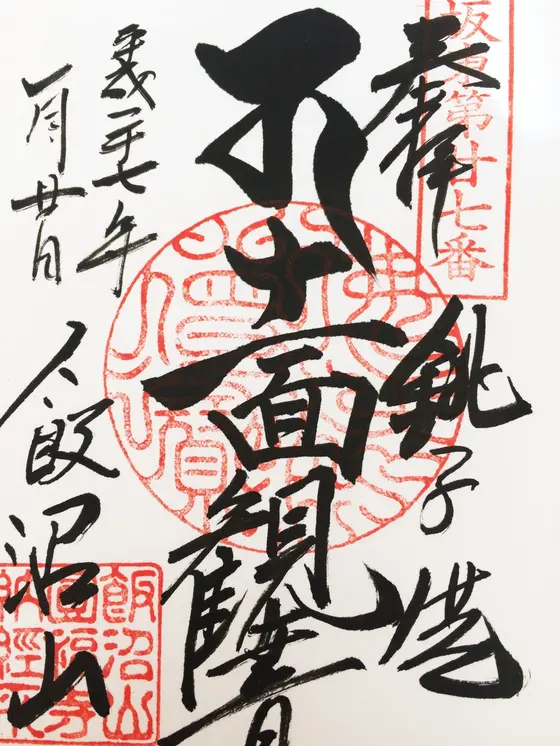 坂東第廿七番
奉拝
銚子港
十一面
佛法僧寶
平成二十七年
一月廿日
飯沼山
飯沼山
圓福寺
納經